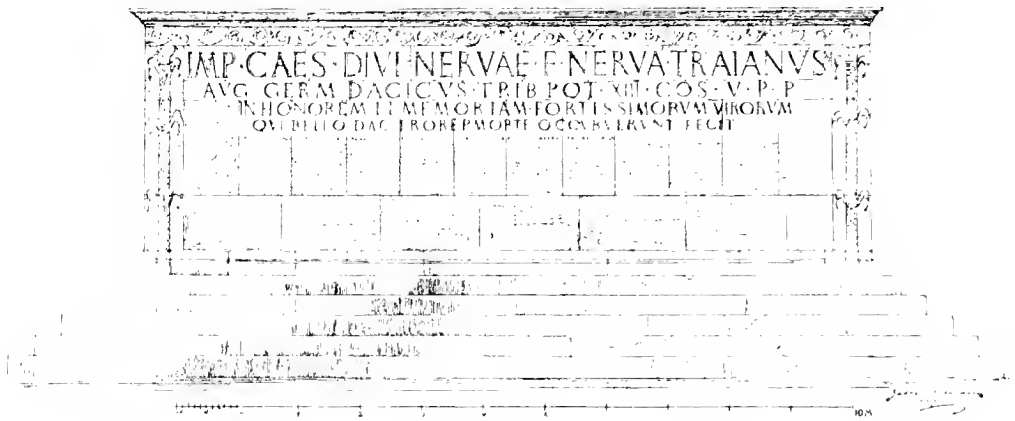 IMP·CAES·DIVI·NERVAE·F·NERVA·TRAIANVS
AVG GERM DACICVS·TRIB POT·XIII·COS·V·P·P
IN HONOREM ET MEMORIAM·FORTISSIMORVM VIRORVM
QVI BELLO DAC PRO REP MORTE OCCVBVERVNT FECIT
1 2 3 4 5 10 M